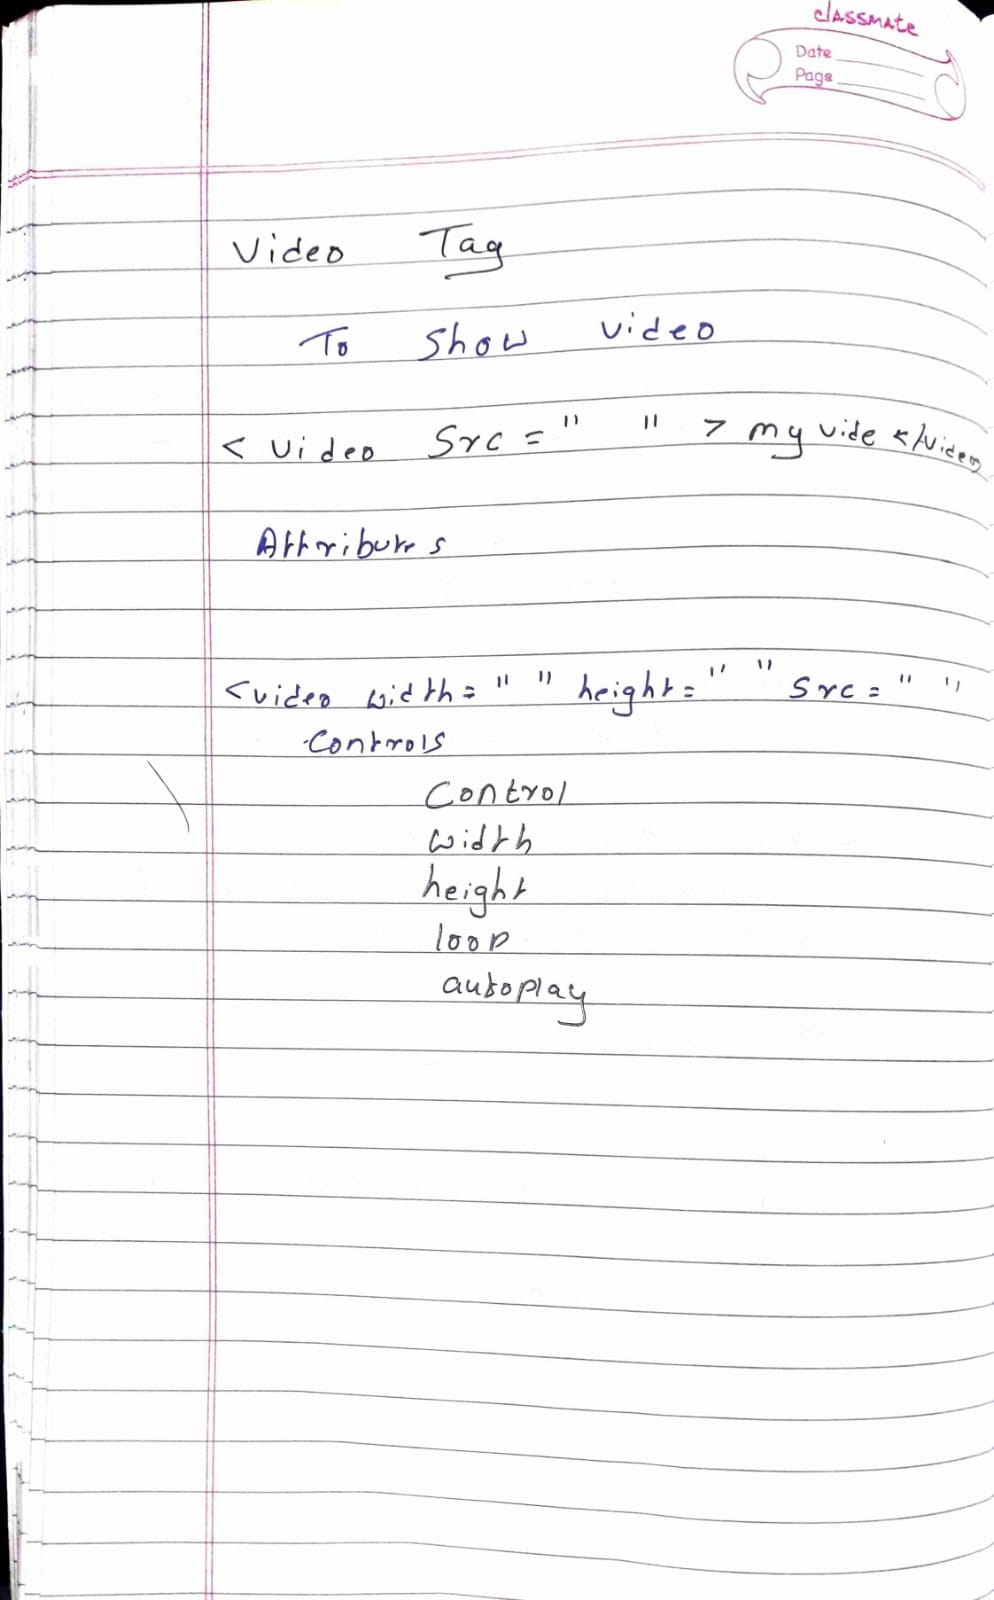 classmate
Date
Page
Video Tag
To Show video
< video Src = " " > my vide </video
Attributes
<video width = " " height = " " Src = " "
controls
Control
width
height
loop
autoplay